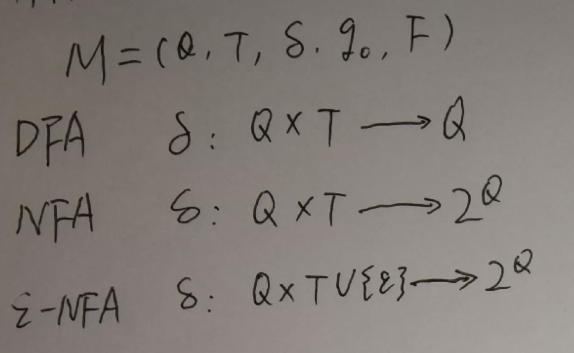 M=(Q, T, δ, q₀, F)
DFA δ: Q×T ⟶ Q
NFA δ: Q×T ⟶ 2^Q
ε-NFA δ: Q×T∪{ε} ⟶ 2^Q